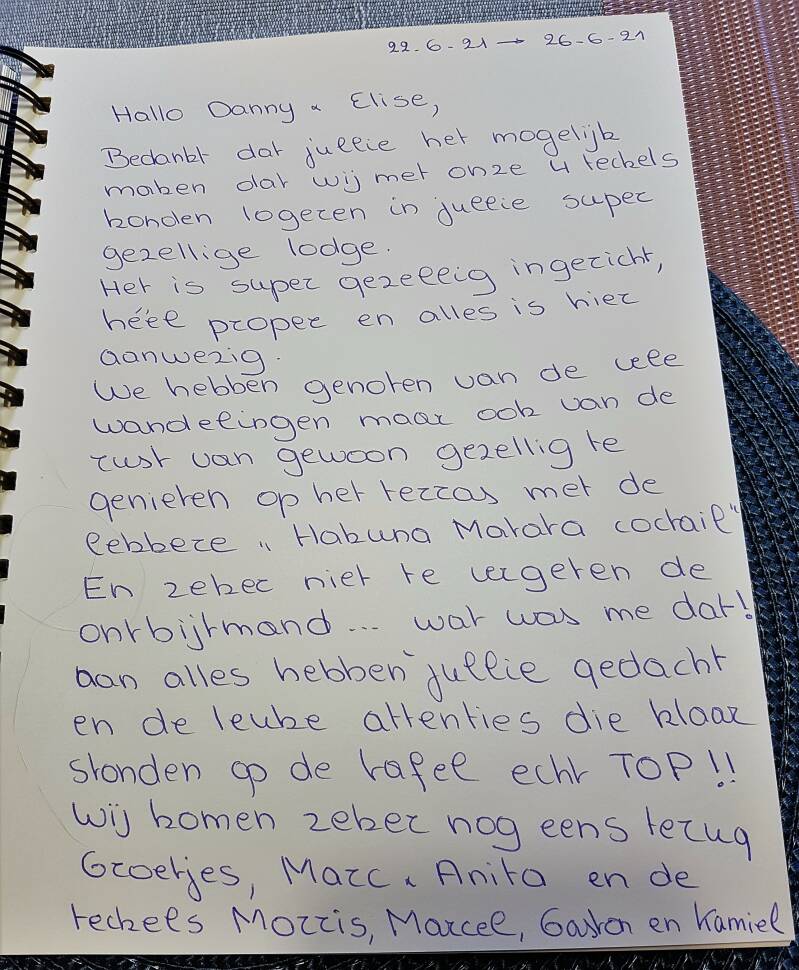 22-6-21 → 26-6-21
Hallo Danny & Elise,
Bedankt dat jullie het mogelijk
maken dat wij met onze 4 teckels
konden logeren in jullie super
gezellige lodge.
Het is super gezellig ingericht,
héél proper en alles is hier
aanwezig.
We hebben genoten van de vele
wandelingen maar ook van de
rust van gewoon gezellig te
genieten op het terras met de
lekkere "Hakuna Matata coctail"
En zeker niet te vergeten de
ontbijtmand... wat was me dat!
aan alles hebben jullie gedacht
en de leuke attenties die klaar
stonden op de tafel echt TOP!!
Wij komen zeker nog eens terug
Groetjes, Marc & Anita en de
teckels Morris, Marcel, Gaston en Kamiel